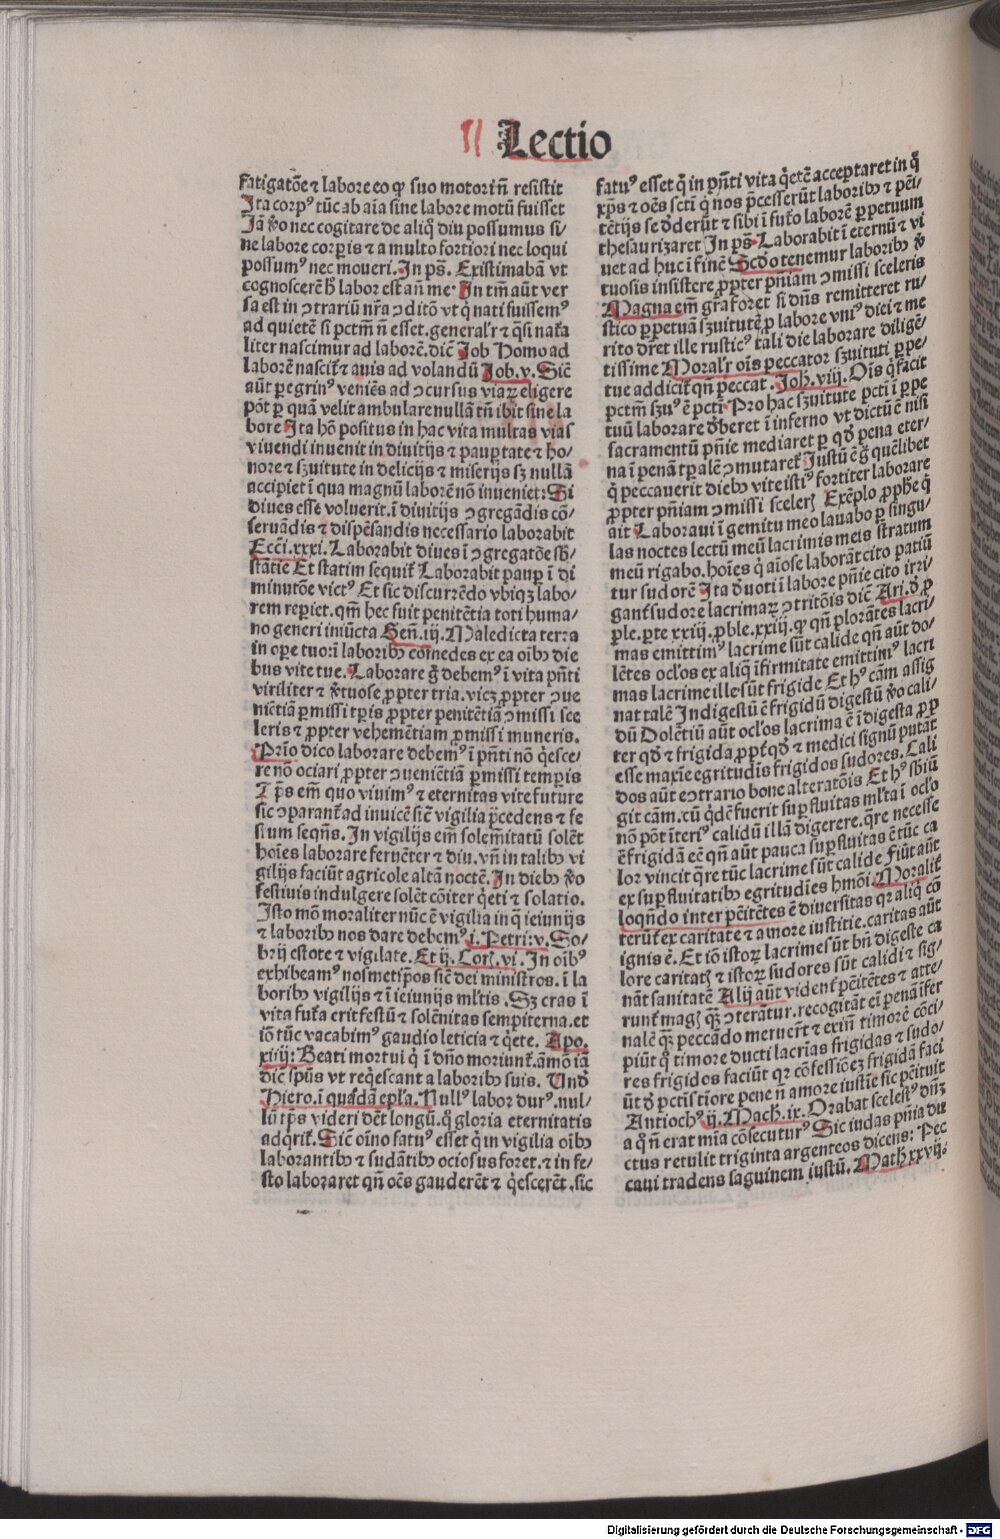 Lectio
fatigatōe ⁊ labore eo ꝙ suo motori nō resistit
Ita corpꝰ tūc ab aīa sine labore motū fuisset
Jā ꝟo nec cogitare de aliq̊ diu possumus si⸗
ne labore corꝑis ⁊ a multo fortiori nec loqui
possumꝰ nec moueri. In ps̄. Existimabā vt
cognoscerē h̄ labor est añ me. In tm̄ aūt ver
sa est in ↄtrariū nr̄a ↄditō vt q̇ nati fuissemꝰ
ad quietē si pctm̄ n̄ esset. generalr̄ ⁊ q̇si nat̄a
liter nascimur ad laborē. dic̄ Job Homo ad
laborē nascit̄ ⁊ auis ad volandū Job. v. Sic̄
aūt peregrinꝰ veniēs ad ↄcursus viaꝝ eligere
pōt ꝑ quā velit ambulare nullā tn̄ ibit sine la
bore Ita hō positus in hac vita multas vias
viuendi inuenit in diuitijs ⁊ pauꝑtate ⁊ ho⸗
nore ⁊ ẜuitute in delicijs ⁊ miserijs sꝫ nullā
accipiet ī qua magnū laborē nō inueniet: Si
diues esse voluerit. ī diuitijs ↄgregādis cō⸗
seruādis ⁊ dispēsandis necessario laborabit
Ecc̄i. xxxi. Laborabit diues ī ↄgregatōe sb̄⸗
stātie Et statim sequit̄ Laborabit pauꝑ ī di
minutōe victꝰ Et sic discurrēdo vbiqꝫ labo⸗
rem reꝑiet. qm̄ hec fuit penitētia toti huma⸗
no generi iniūcta Gen̄. iij. Maledicta terra
in oꝑe tuo: ī laboribꝫ comedes ex ea oībꝫ die
bus vite tue. Laborare g̊ debemꝰ ī vita pn̄ti
viriliter ⁊ ꝟtuose ꝓpter tria. vicꝫ ꝓpter ↄue
niētiā ꝑmissi tꝑis ꝓpter penitētiā ↄmissi sce
leris ⁊ ꝓpter vehemētiam ꝑmissi muneris.
Prīo dico laborare debemꝰ ī pn̄ti nō q̇esce⸗
re nō ociari ꝓpter ↄueniētiā ꝑmissi temꝑis
Tp̄s em̄ quo viuimꝰ ⁊ eternitas vite future
sic ↄparant̄ ad inuicē sic̄ vigilia p̄cedens ⁊ fe
stum seqn̄s. In vigilijs em̄ solemnitatū solēt
hoīes laborare feruēter ⁊ diu. vn̄ in talibꝫ vi
gilijs faciūt agricole altā noctē. In diebꝫ ꝟo
festiuis indulgere solēt cōiter q̇eti ⁊ solatio.
Isto mō moraliter nūc ē vigilia in q̇ ieiunijs
⁊ laboribꝫ nos dare debemꝰ i. Petri: v. So⸗
brij estote ⁊ vigilate. Et ij. Cor̄. vi. In oībꝰ
exhibeamꝰ nosmetip̄os sic̄ dei ministros. ī la
boribꝫ vigilijs ⁊ ī ieiunijs ml̄tis. Sꝫ cras ī
vita fut̄a erit festū ⁊ solēnitas sempiterna. et
iō tūc vacabimꝰ gaudio leticia ⁊ q̇ete. Apo.
xiiij: Beati mortui q̇ ī dn̄o moriunt̄. āmō iā
dic̄ sp̄us vt req̇escant a laboribꝫ suis. Und̄
Hiero. ī quadā ep̄la. Nullꝰ labor durꝰ. nul⸗
lū tp̄s videri dēt longū. q̊ gloria eternitatis
adq̇rit̄. Sic oīno fatuꝰ esset q̇ in vigilia oībꝫ
laborantibꝫ ⁊ sudātibꝫ ociosus foret. ⁊ in fe⸗
sto laboraret qn̄ oēs gauderēt ⁊ q̇escerēt. sic
fatuꝰ esset q̇ in pn̄ti vita q̇etē acceptaret in q̊
xp̄s ⁊ oēs sc̄ti q̇ nos p̄cesserūt laboribꝫ ⁊ pēi⸗
tētijs se d̄derūt ⁊ sibi ī fut̄o laborē perpetuum
thesaurizaret In ps̄. Laborabit ī eternū ⁊ vi
uet ad huc ī finē Scd̄o tenemur laboribꝫ ꝟ
tuosis insistere ꝓpter pn̄iam ↄmissi sceleris
Magna em̄ gr̄a foret si dn̄s remitteret ru⸗
stico ꝑpetuā ẜuitutē ꝓ labore vniꝰ diei ⁊ me
rito d̄ret ille rusticꝰ tali die laborare diligē⸗
tissime Moralr̄ oīs peccator ẜuituti ꝑpe⸗
tue addicit̄ qn̄ peccat. Joh̄. viij. Oīs q̇ facit
pctm̄ ẜuꝰ ē pcti Pro hac ẜuitute pcti ī ꝑpe
tuū laborare d̄beret ī inferno vt dictū ē nisi
sacramentū pn̄ie mediaret ꝑ qd̄ pena eter⸗
na ī penā tꝑalē ↄmutaret̄ Justū ē g̊ quēlibet
q̇ peccauerit diebꝫ vite istiꝰ fortiter laborare
ꝓpter pn̄iam ↄmissi sceler̄ Exēplo ꝓph̄e q̇
ait Laboraui ī gemitu meo lauabo ꝑ singu⸗
las noctes lectū meū lacrimis meis stratum
meū rigabo. hoīes q̇ aīose laborāt cito patiū
tur sudorē Ita d̄uoti ī labore pn̄ie cito irri⸗
gant̄ sudore lacrimaꝝ ↄtritōis dic̄ Ari. d̄ ꝓ
ple. ꝑte xxiij. ꝓble. xxiij. ꝙ qn̄ plorātes lacri⸗
mas emittimꝰ lacrime sūt calide qn̄ aūt do⸗
lētes oc̄los ex aliq̇ īfirmitate emittimꝰ lacri
mas lacrime ille sūt frigide Et hꝰ cām assig
nat talē Indigestū ē frigidū digestū ꝟo cali⸗
dū Dolētiū aūt oc̄los lacrima ē īdigesta ꝓp
ter qd̄ ⁊ frigida ꝓpt̄ qd̄ ⁊ medici signū putāt
esse maxīe egritudīs frigidos sudores. Cali
dos aūt ecↄtrario bone alteratōis Et hꝰ sbiū
git cām. cū q̇dē fuerit suꝑfluitas ml̄ta ī oc̄lo
nō pōt īteriꝰ calidū illā digerere. q̄re necesse
ē frigidā eē qn̄ aūt pauca suꝑfluitas ē tūc ca
lor vincit q̄re tūc lacrime sūt calide Fiūt aūt
ex suꝑfluitatibꝫ egritudīes hmōi. Moralit̄
loqn̄do inter pēitētes ē diuersitas qꝛ aliq̇ cō
terūt̄ ex caritate ⁊ amore iustitie. caritas aūt
ignis ē. Et iō istoꝝ lacrime sūt bn̄ digeste ca
lore caritat̄ ⁊ istoꝝ sudores sūt calidi ⁊ sig⸗
nāt sanitatē Alij aūt vident̄ pēitētes ⁊ atte⸗
runt̄ maḡ qꝫ ↄterātur. recogitāt ei penā īfer
nalē qꝫ peccādo meruer̄t ⁊ exin̄ timorē cōci⸗
piūt q̊ timore ducti lacrīas frigidas ⁊ sudo⸗
res frigidos faciūt qꝛ cōfessiōeꝫ frigidā faci
ūt d̄ pctis tiore pene n̄ amore iustīe sic pēituit
Antiochꝰ ij. Mach̄. ix. Orabat scelestꝰ dn̄ꝫ
a q̊ n̄ erat mīa cōsecuturꝰ Sic iudas pn̄ia du
ctus retulit triginta argenteos dicens: Pec
caui tradens saguinem iustū. Math̄ xxvij.
Digitalisierung gefördert durch die Deutsche Forschungsgemeinschaft - DFG